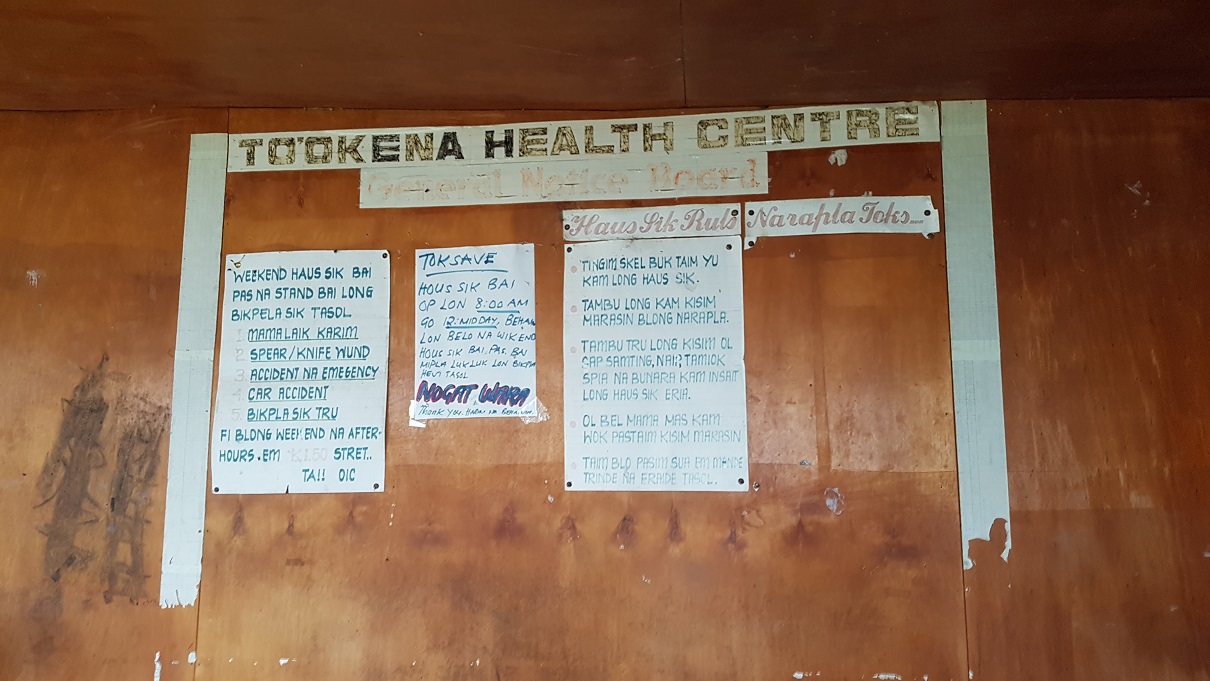 TO'OKENA HEALTH CENTRE
General Notice Board
Haus Sik Ruls
Narapla Toks...
WEEKEND HAUS SIK BAI
PAS NA STAND BAI LONG
BIKPELA SIK TASOL
1. MAMA LAIK KARIM
2. SPEAR/KNIFE WUND
3. ACCIDENT NA EMEGENCY
4. CAR ACCIDENT
5. BIKPLA SIK TRU
FI BLONG WEEKEND NA AFTER-
HOURS. EM K1.50 STRET..
TA!! OIC
TOKSAVE
HOUS SIK BAI
OP LON 8:00 AM
GO 12:MIDDAY, BEHAN
LON BELO NA WIKEND
HOUS SIK BAI PAS. BAI
MIPLA LUKLUK LON BIKPLA
HEVI TASOL
NOGAT WARA
THANK YOU.
TINGIM SKEL BUK TAIM YU
KAM LONG HAUS SIK.
TAMBU LONG KAM KISIM
MARASIN BLONG NARAPLA.
TAMBU TRU LONG KISIM OL
SAP SAMTING, NAIP, TAMIOK
SPIA NA BUNARA KAM INSAIT
LONG HAUS SIK ERIA.
OL BEL MAMA MAS KAM
WOK PASTAIM KISIM MARASIN
TAIM BLO PASIM SUA EM MANDE
TRINDE NA FRAIDE TASOL.